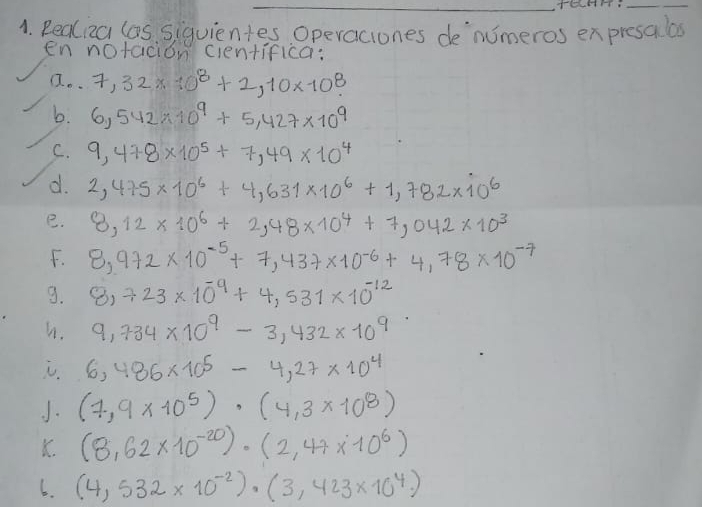 1. Realiza las siguientes operaciones de números expresados
en notación científica:
a.. 7,32 x 10⁸ + 2,10 x 10⁸
b. 6,542 x 10⁹ + 5,427 x 10⁹
c. 9,478 x 10⁵ + 7,49 x 10⁴
d. 2,475 x 10⁶ + 4,631 x 10⁶ + 1,782 x 10⁶
e. 8,12 x 10⁶ + 2,48 x 10⁴ + 7,042 x 10³
F. 8,972 x 10⁻⁵ + 7,437 x 10⁻⁶ + 4,78 x 10⁻⁷
g. 8,723 x 10⁻⁹ + 4,531 x 10⁻¹²
h. 9,734 x 10⁹ - 3,432 x 10⁹
i. 6,486 x 10⁵ - 4,27 x 10⁴
J. (7,9 x 10⁵) · (4,3 x 10⁸)
K. (8,62 x 10⁻²⁰) · (2,47 x 10⁶)
l. (4,532 x 10⁻²) · (3,423 x 10⁴)